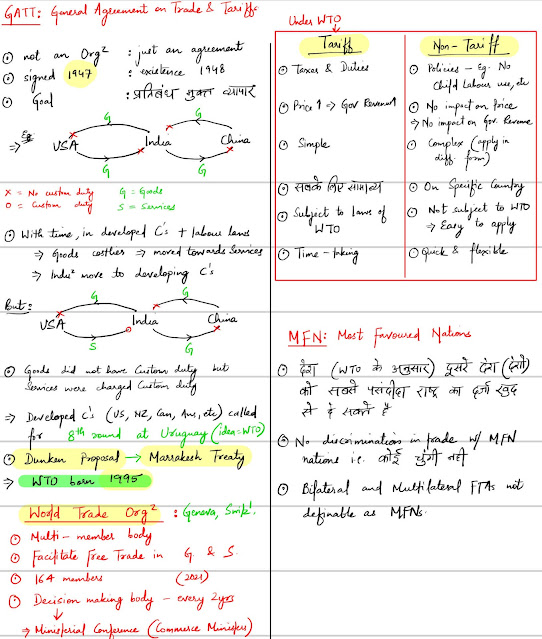 GATT: General Agreement on Trade & Tariffs
⊙ not an Orgⁿ : just an agreement
⊙ signed 1947 : existence 1948
⊙ Goal : प्रतिबंध मुक्त व्यापार
⇒ Eg
G G
USA India China
G G
X = No custom duty G = Goods
O = Custom duty S = Services
⊙ With time, in developed C's ↑ labour laws
⇒ Goods costlier ⇒ moved towards Services
⇒ Indus move to developing C's
But:
G G
USA India China
S G
⊙ Goods did not have Custom duty but
Services were charged Custom duty
⇒ Developed C's (US, NZ, Can, Aus, etc) called
for 8th round at Uruguay (idea = WTO)
⊙ Dunken Proposal → Marrakesh Treaty
⇒ WTO born 1995
World Trade Orgⁿ : Geneva, Switz!
⊙ Multi-member body
⊙ Facilitate Free Trade in G & S
⊙ 164 members (2021)
⊙ Decision making body - every 2yrs
→ Ministerial Conference (Commerce Ministers)
Under WTO
Tariff Non-Tariff
⊙ Taxes & Duties ⊙ Policies - Eg. No
Child Labour use, etc
⊙ Price↑ ⇒ Gov Revenue↑ ⊙ No impact on Price
⇒ No impact on Gov. Revenue
⊙ Simple ⊙ Complex (apply in
diff. form)
⊙ सबके लिए सामान्य ⊙ On Specific Country
⊙ Subject to Laws of ⊙ Not subject to WTO
WTO ⇒ Easy to apply
⊙ Time-taking ⊙ Quick & flexible
MFN: Most Favoured Nations
⊙ देश (WTO के अनुसार) दूसरे देश (देशों)
को सबसे पसंदीदा राष्ट्र का दर्जा खुद
से दे सकते हैं
⊙ No discrimination in trade w/ MFN
nations i.e. कोई चुंगी नहीं
⊙ Bilateral and Multilateral FTAs not
definable as MFNs.